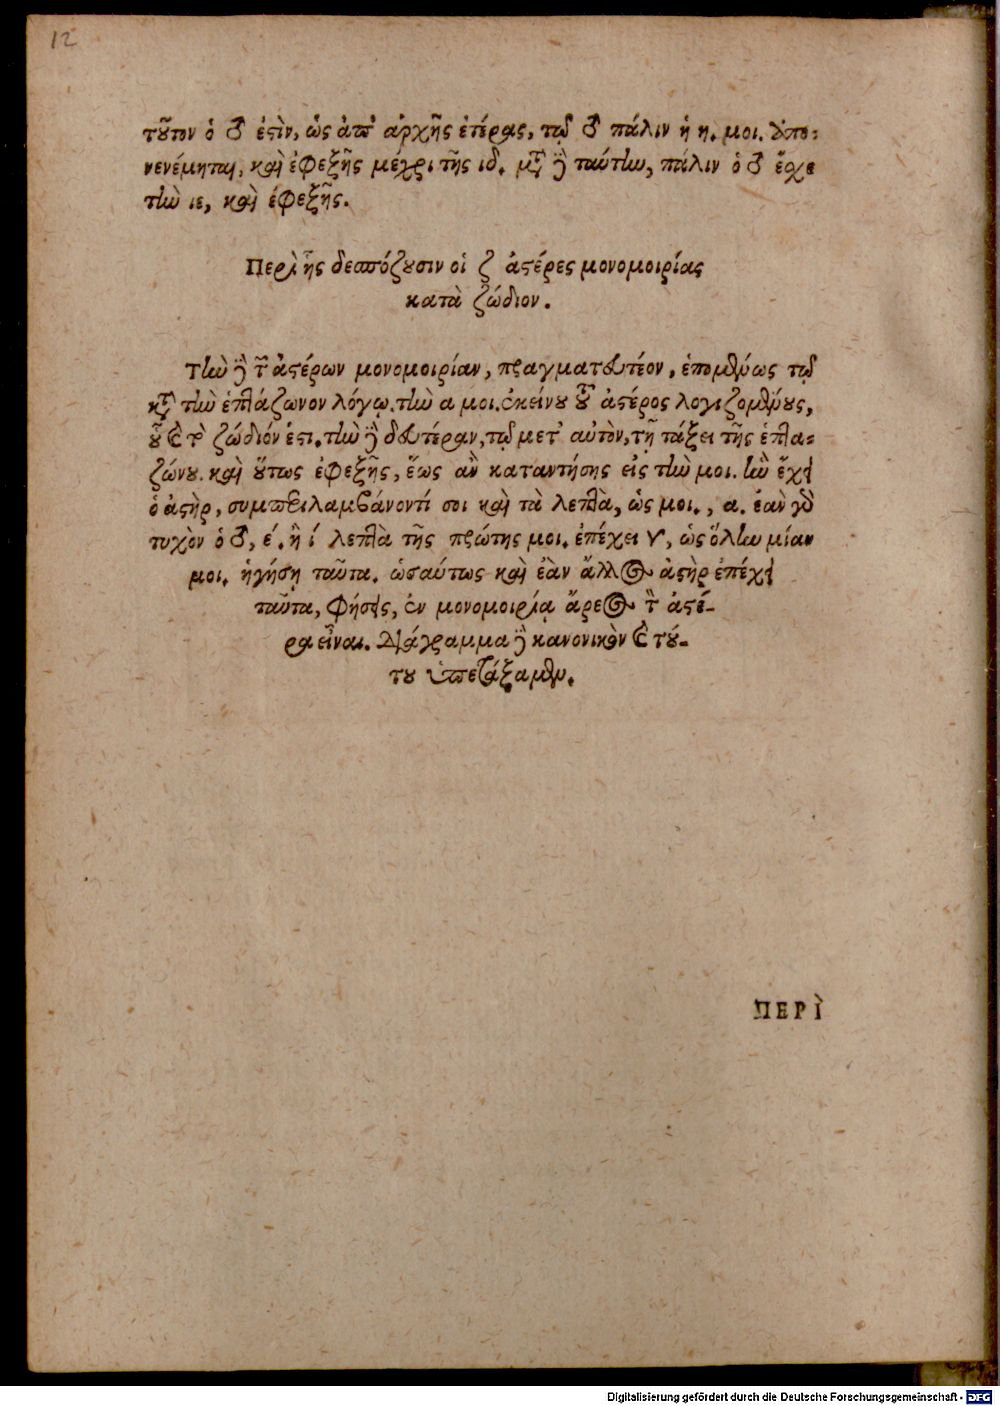 12
τοῦτον ὁ ♂ ἐστὶν, ὡς ἀπ' ἀρχῆς ἑτέρας, τῷ ♂ πάλιν ἡ η. μοι. ἀπο-
νενέμηται, καὶ ἐφεξῆς μέχρι τῆς ιδ. μετὰ δὲ ταύτην, πάλιν ὁ ♂ ἔχει
τὴν ιε, καὶ ἐφεξῆς.
Περὶ ἧς δεσπόζουσιν οἱ ζ ἀστέρες μονομοιρίας
κατὰ ζώδιον.
Τὴν δὲ τῶν ἀστέρων μονομοιρίαν, πραγματευτέον, ἑπομένως τῷ
κατὰ τὴν ἑπτάζωνον λόγῳ. τὴν α μοι. ἐκείνου τοῦ ἀστέρος λογιζομένους,
οὗ καὶ τὸ ζώδιόν ἐστι. τὴν δὲ δευτέραν, τῷ μετ' αὐτὸν, τῇ τάξει τῆς ἑπτα-
ζώνου. καὶ οὕτως ἐφεξῆς, ἕως ἂν καταντήσῃς εἰς τὴν μοι. ἣν ἔχει
ὁ ἀστὴρ, συμπεριλαμβάνοντί σοι καὶ τὰ λεπτὰ, ὡς μοι., α. ἐὰν γὰρ
τυχὸν ὁ ♂, έ. ἢ ί λεπτὰ τῆς πρώτης μοι. ἐπέχει ♈, ὡς ὅλην μίαν
μοι. ἡγήσῃ ταῦτα. ὡσαύτως καὶ ἐὰν ἄλλος ἀστὴρ ἐπέχει
ταῦτα, φήσεις, ἐν μονομοιρίᾳ ἄρεος τὸν ἀστέ-
ρα εἶναι. Διάγραμμα δὲ κανονικὸν καὶ τού-
του ὑπετάξαμεν.
ΠΕΡῚ
Digitalisierung gefördert durch die Deutsche Forschungsgemeinschaft - DFG